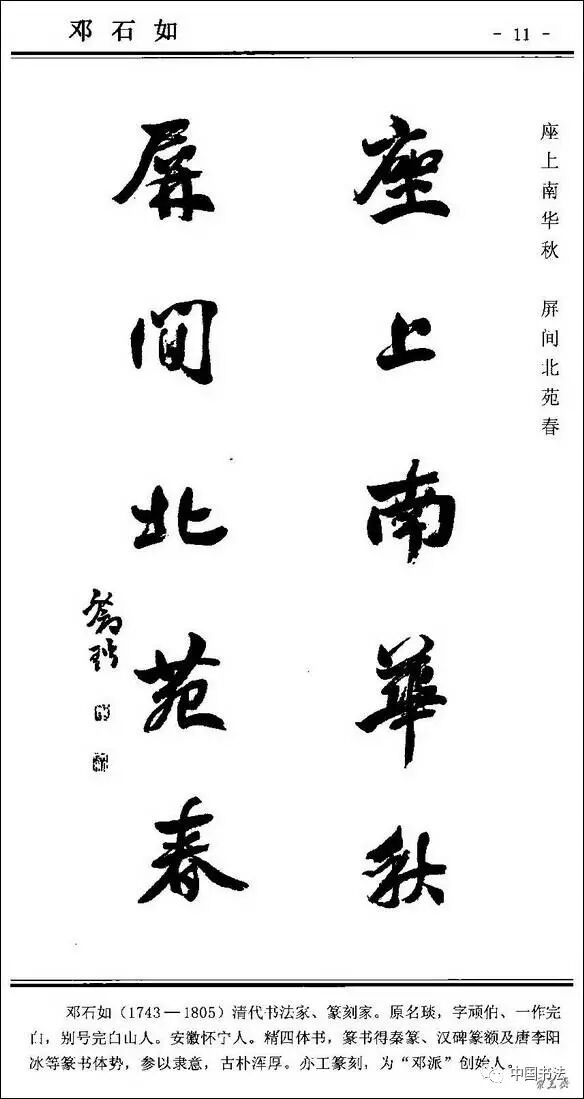 邓石如
- 11 -
座上南华秋 屏间北苑春
座上南華秋
屏間北苑春
邓石如(1743—1805)清代书法家、篆刻家。原名琰,字顽伯、一作完
白,别号完白山人。安徽怀宁人。精四体书,篆书得秦篆、汉碑篆额及唐李阳
冰等篆书体势,参以隶意,古朴浑厚。亦工篆刻,为“邓派”创始人。
中国书法